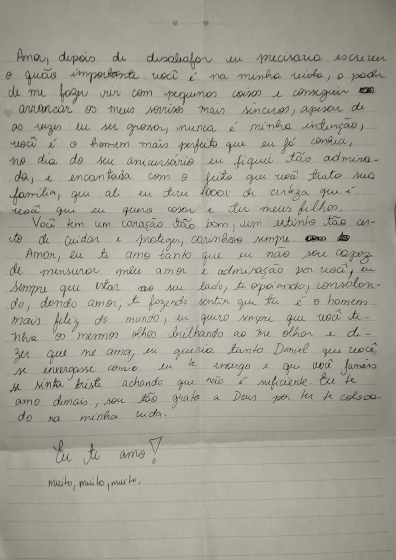 Amor, depois de desabafar eu precisava escrever
o quão importante você é na minha vida, o poder
de me fazer rir com pequenas coisas e conseguir
arrancar os meus sorrisos mais sinceros, apesar de
as vezes eu ser grossa, nunca é minha intenção,
você é o homem mais perfeito que eu já conheci,
no dia do seu aniversário eu fiquei tão admira-
da, e encantada com o jeito que você trata sua
família, que ali eu tive 1000% de certeza que é
você que eu quero casar e ter meus filhos.
Você tem um coração tão bom, um instinto tão cer-
to de cuidar e proteger, carinhoso sempre.
Amor, eu te amo tanto que eu não sou capaz
de mensurar meu amor e admiração por você, eu
sempre quero estar ao seu lado, te apoiando, consolan-
do, dando amor, te fazendo sentir que tu é o homem
mais feliz do mundo, eu quero sempre que você te-
nha os mesmos olhos brilhando ao me olhar e di-
zer que me ama, eu queria tanto Daniel que você
se enxergasse como eu te enxergo e que você jamais
se sinta triste achando que não é suficiente. Eu te
amo demais, sou tão grata a Deus por ter te coloca-
do na minha vida.
Eu te amo!
muito, muito, muito.